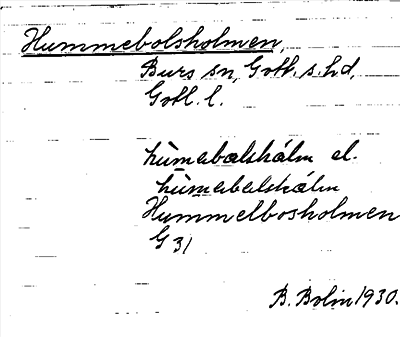 Hummebolsholmen,
Burs sn, Gotl. s. hd,
Gotl. l.
hùmabalshálm el.
hùmabalshálm
Hummelbosholmen
G 31
B. Bolin 1930.